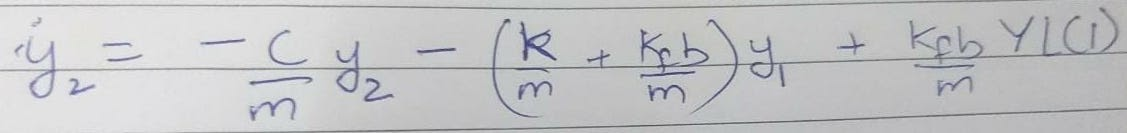 ẏ₂ = -c/m y₂ - (k/m + Kfb/m) y₁ + Kfb/m YL(1)